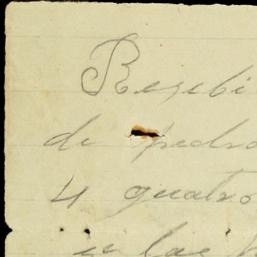 Resebi
de pedro
4 quatro